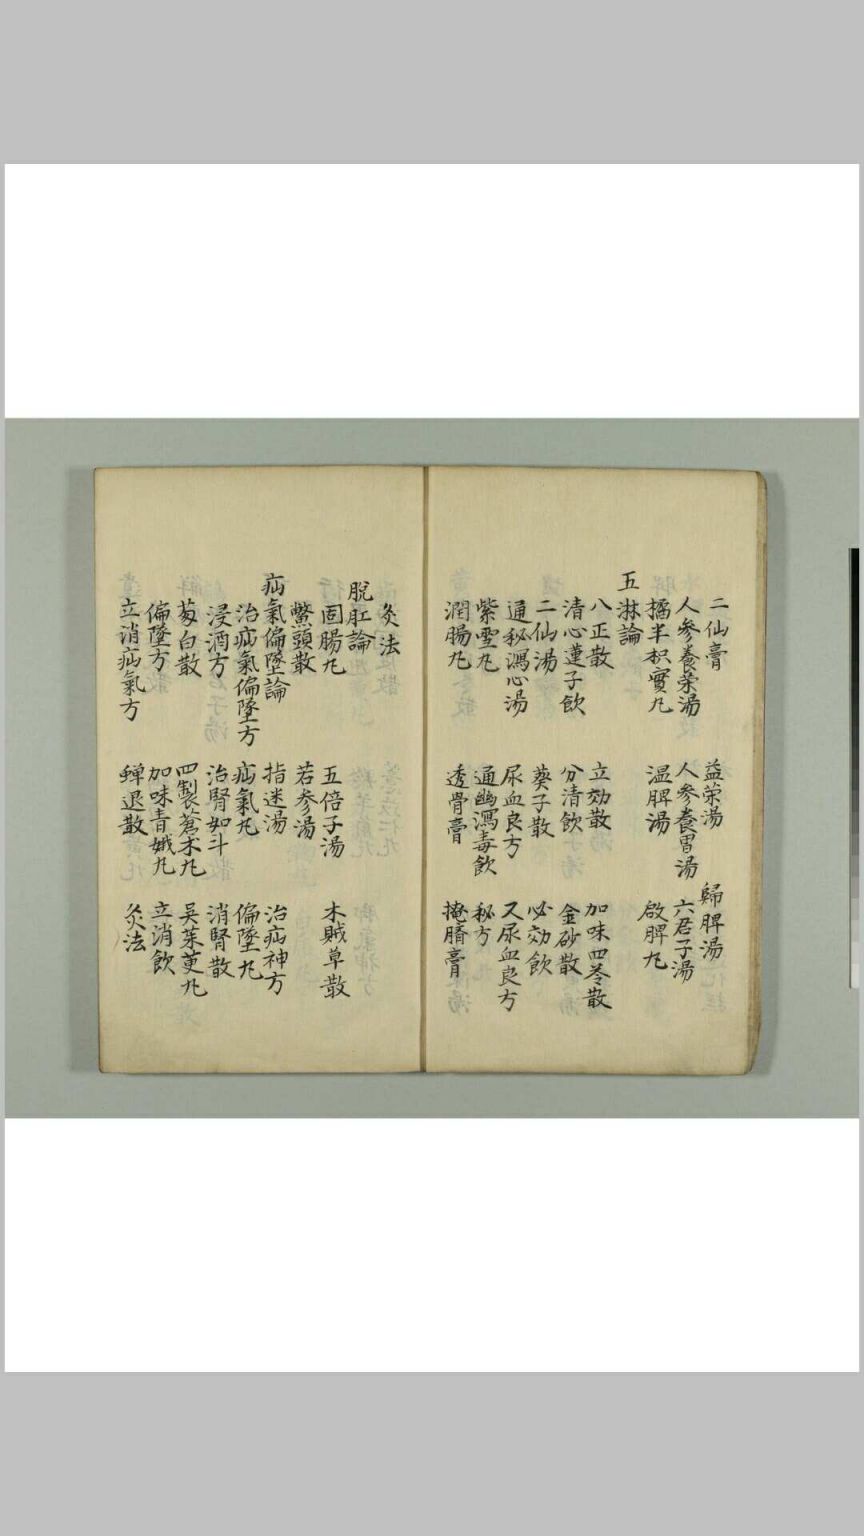 二仙膏 益荣湯 歸脾湯
人參養荣湯 人參養胃湯 六君子湯
橘半枳實丸 温脾湯 啟脾丸
五淋論
八正散 立効散 加味四苓散
清心蓮子飲 分清飲 金砂散
二仙湯 葵子散 必効飲
通秘瀉心湯 尿血良方 又尿血良方
紫雪丸 通幽瀉毒飲 秘方
潤腸丸 透骨膏 掩臍膏
灸法
脫肛論
固腸丸 五倍子湯 木賊草散
鱉頭散 苦參湯
疝氣偏墜論 指迷湯 治疝神方
治疝氣偏墜方 疝氣丸 偏墜丸
浸酒方 治腎如斗 消腎散
芴白散 四製蒼术丸 吳茱萸丸
偏墜方 加味青娥丸 立消飲
立消疝氣方 蟬退散 灸法